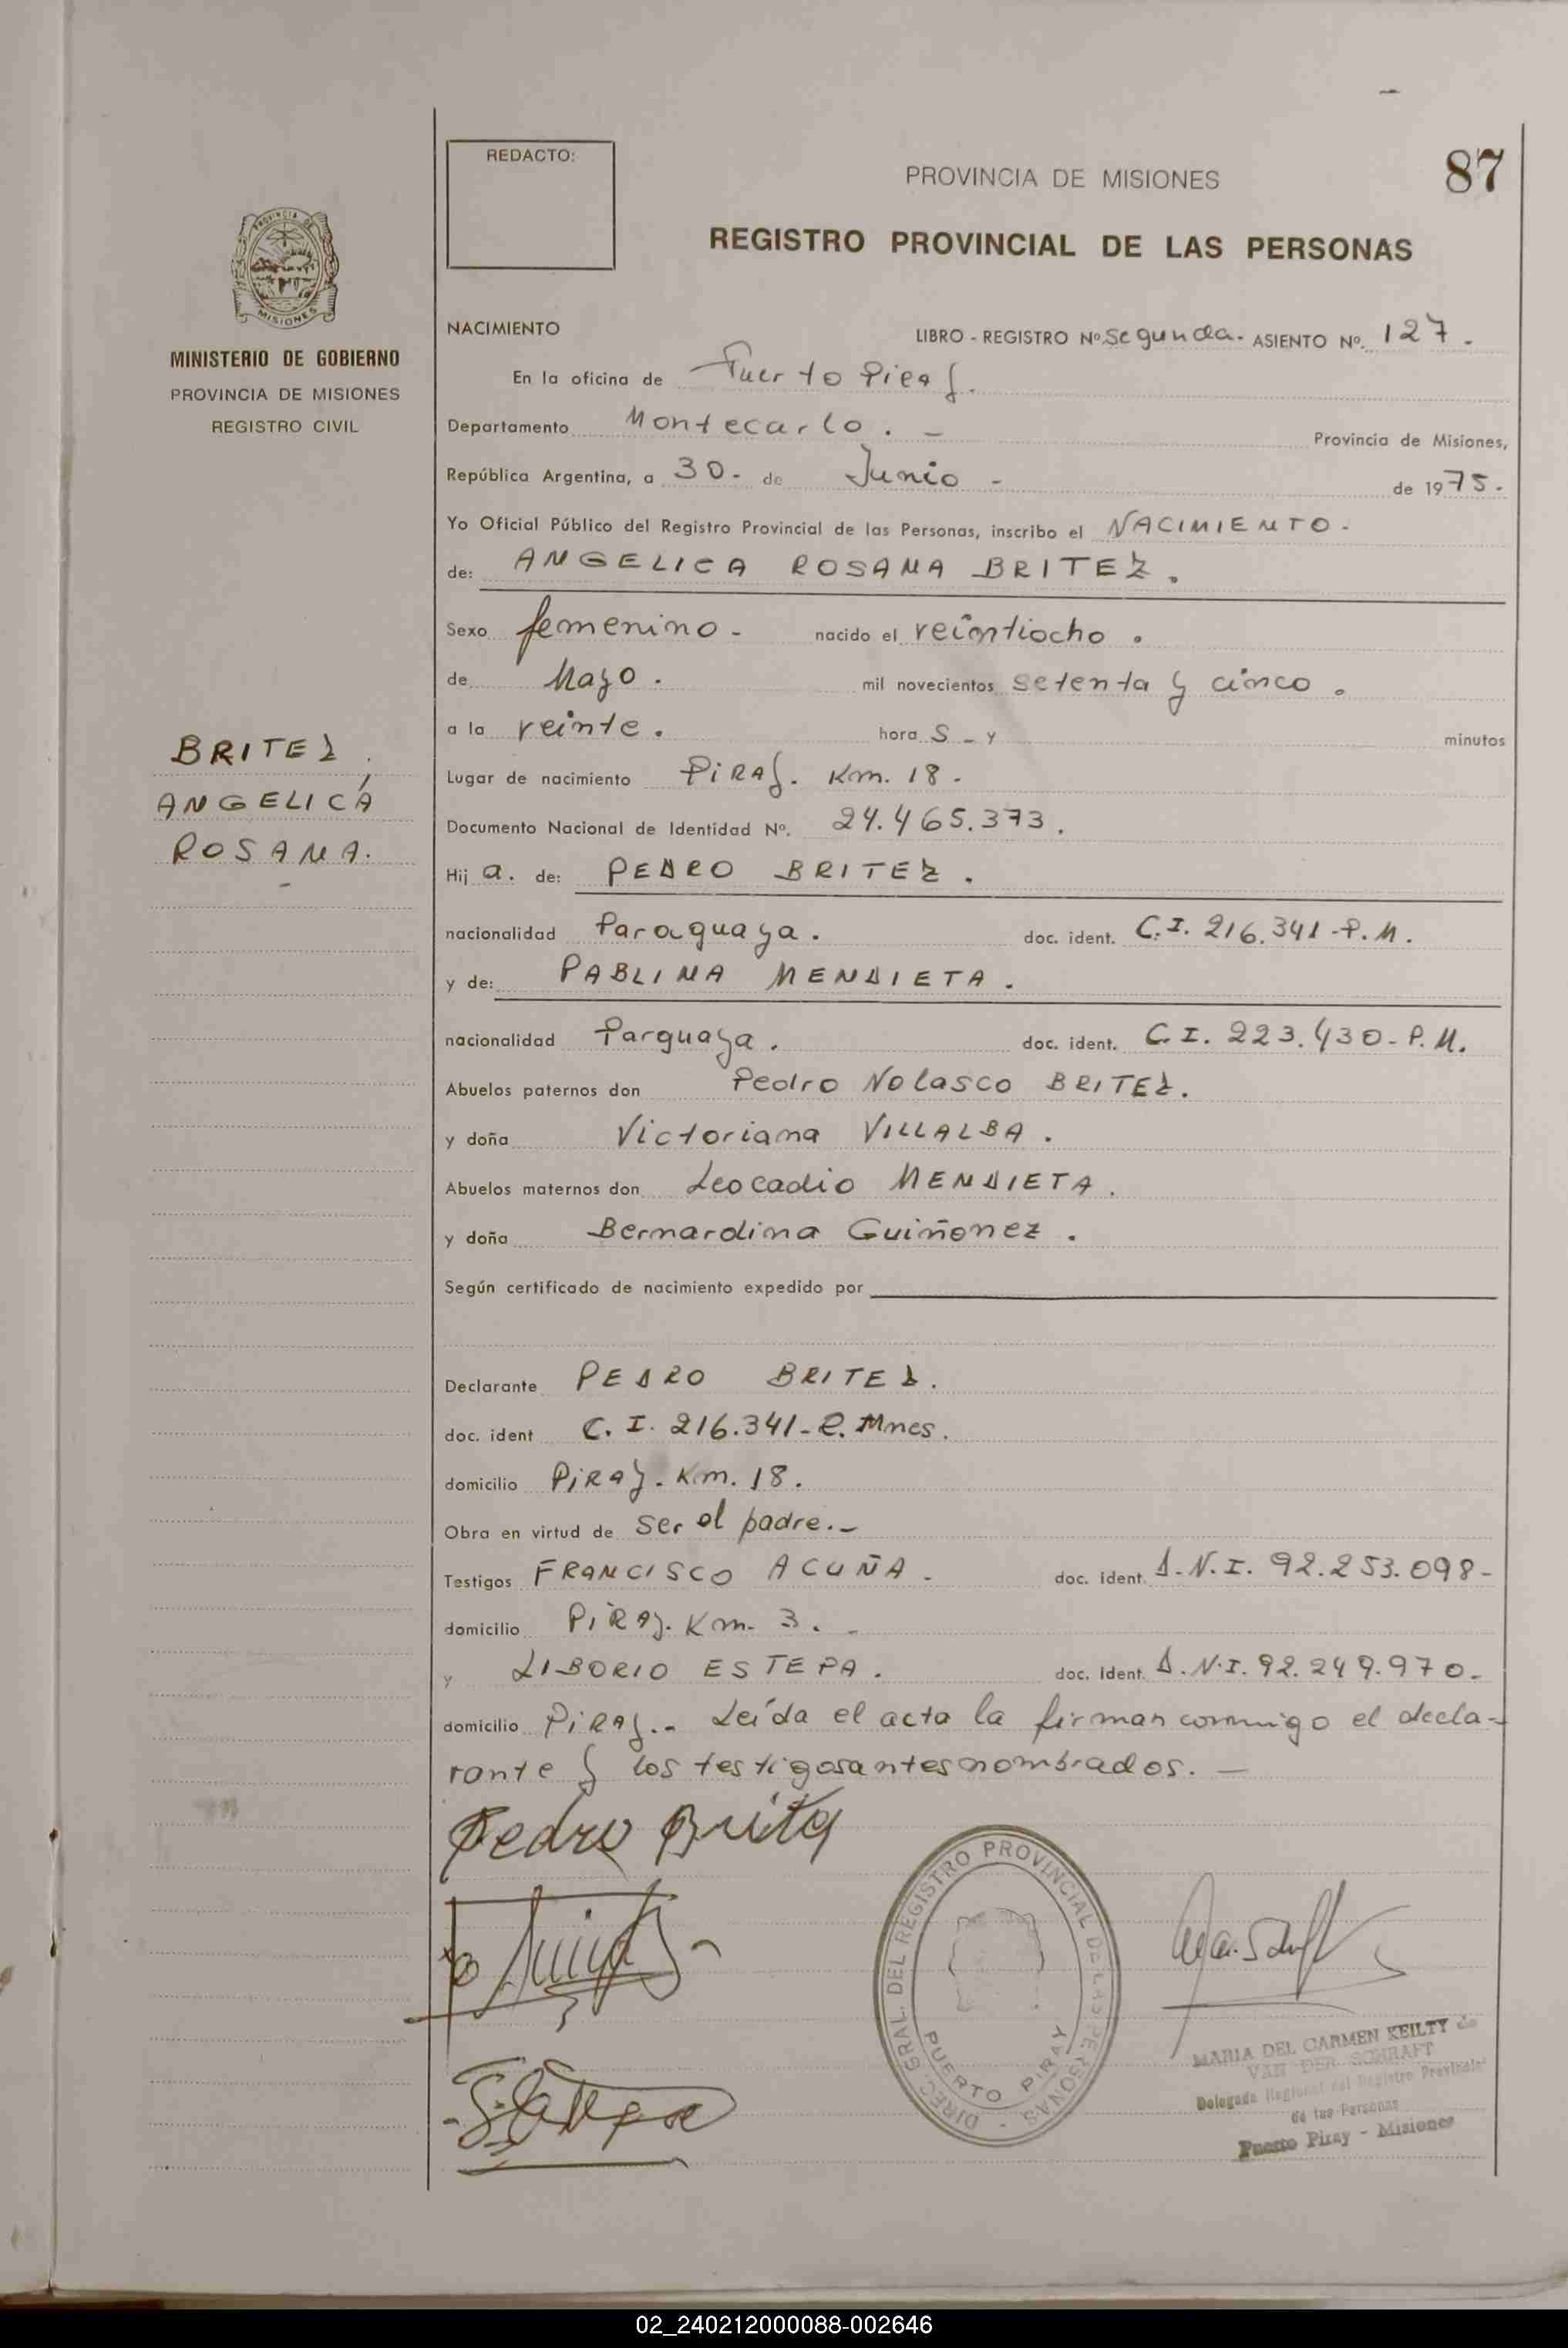 REDACTO:
PROVINCIA DE MISIONES
87
REGISTRO PROVINCIAL DE LAS PERSONAS
PROVINCIA DE
MISIONES
MINISTERIO DE GOBIERNO
PROVINCIA DE MISIONES
REGISTRO CIVIL
NACIMIENTO LIBRO - REGISTRO Nº segunda. ASIENTO Nº. 127.
En la oficina de Puerto Piray.
Departamento Montecarlo. - Provincia de Misiones,
República Argentina, a 30- de Junio - de 1975-
Yo Oficial Público del Registro Provincial de las Personas, inscribo el NACIMIENTO-
de: ANGELICA ROSANA BRITEZ.
Sexo femenino- nacido el veintiocho.
de Mayo. mil novecientos setenta y cinco.
a la veinte. hora S - y minutos
Lugar de nacimiento PiRAy. Km. 18-
Documento Nacional de Identidad Nº. 24.465.373.
Hij a. de: PEDRO BRITEZ.
nacionalidad Paraguaya. doc. ident. C.I. 216.341-P.M.
y de: PABLINA MENDIETA.
nacionalidad Parguaya. doc. ident. C.I. 223.430-P.M.
Abuelos paternos don Pedro Nolasco BRITEZ.
y doña Victoriana VILLALBA.
Abuelos maternos don Leocadio MENDIETA.
y doña Bernardina Guiñonez.
Según certificado de nacimiento expedido por
Declarante PEDRO BRITEZ.
doc. ident C.I. 216.341-P. Mnes.
domicilio PiRAy. Km. 18.
Obra en virtud de ser el padre.-
Testigos FRANCISCO ACUÑA- doc. ident. D.N.I. 92.253.098-
domicilio PiRAy. Km. 3.-
y LIBORIO ESTEPA. doc. ident. D.N.I. 92.249.970-
domicilio PiRAy.- Leída el acta la firman conmigo el decla-
rante y los testigosantesnombrados.-
BRITEZ.
ANGELICA
ROSANA.
Pedro Britez
DIREC. GRAL. DEL REGISTRO PROVINCIAL DE LAS PERSONAS
PUERTO PIRAY
MARIA DEL CARMEN KEILTY de
VAN DER SCHRAFT
Delegada Regional del Registro Provincial
de las Personas
Puerto Piray - Misiones
02_240212000088-002646